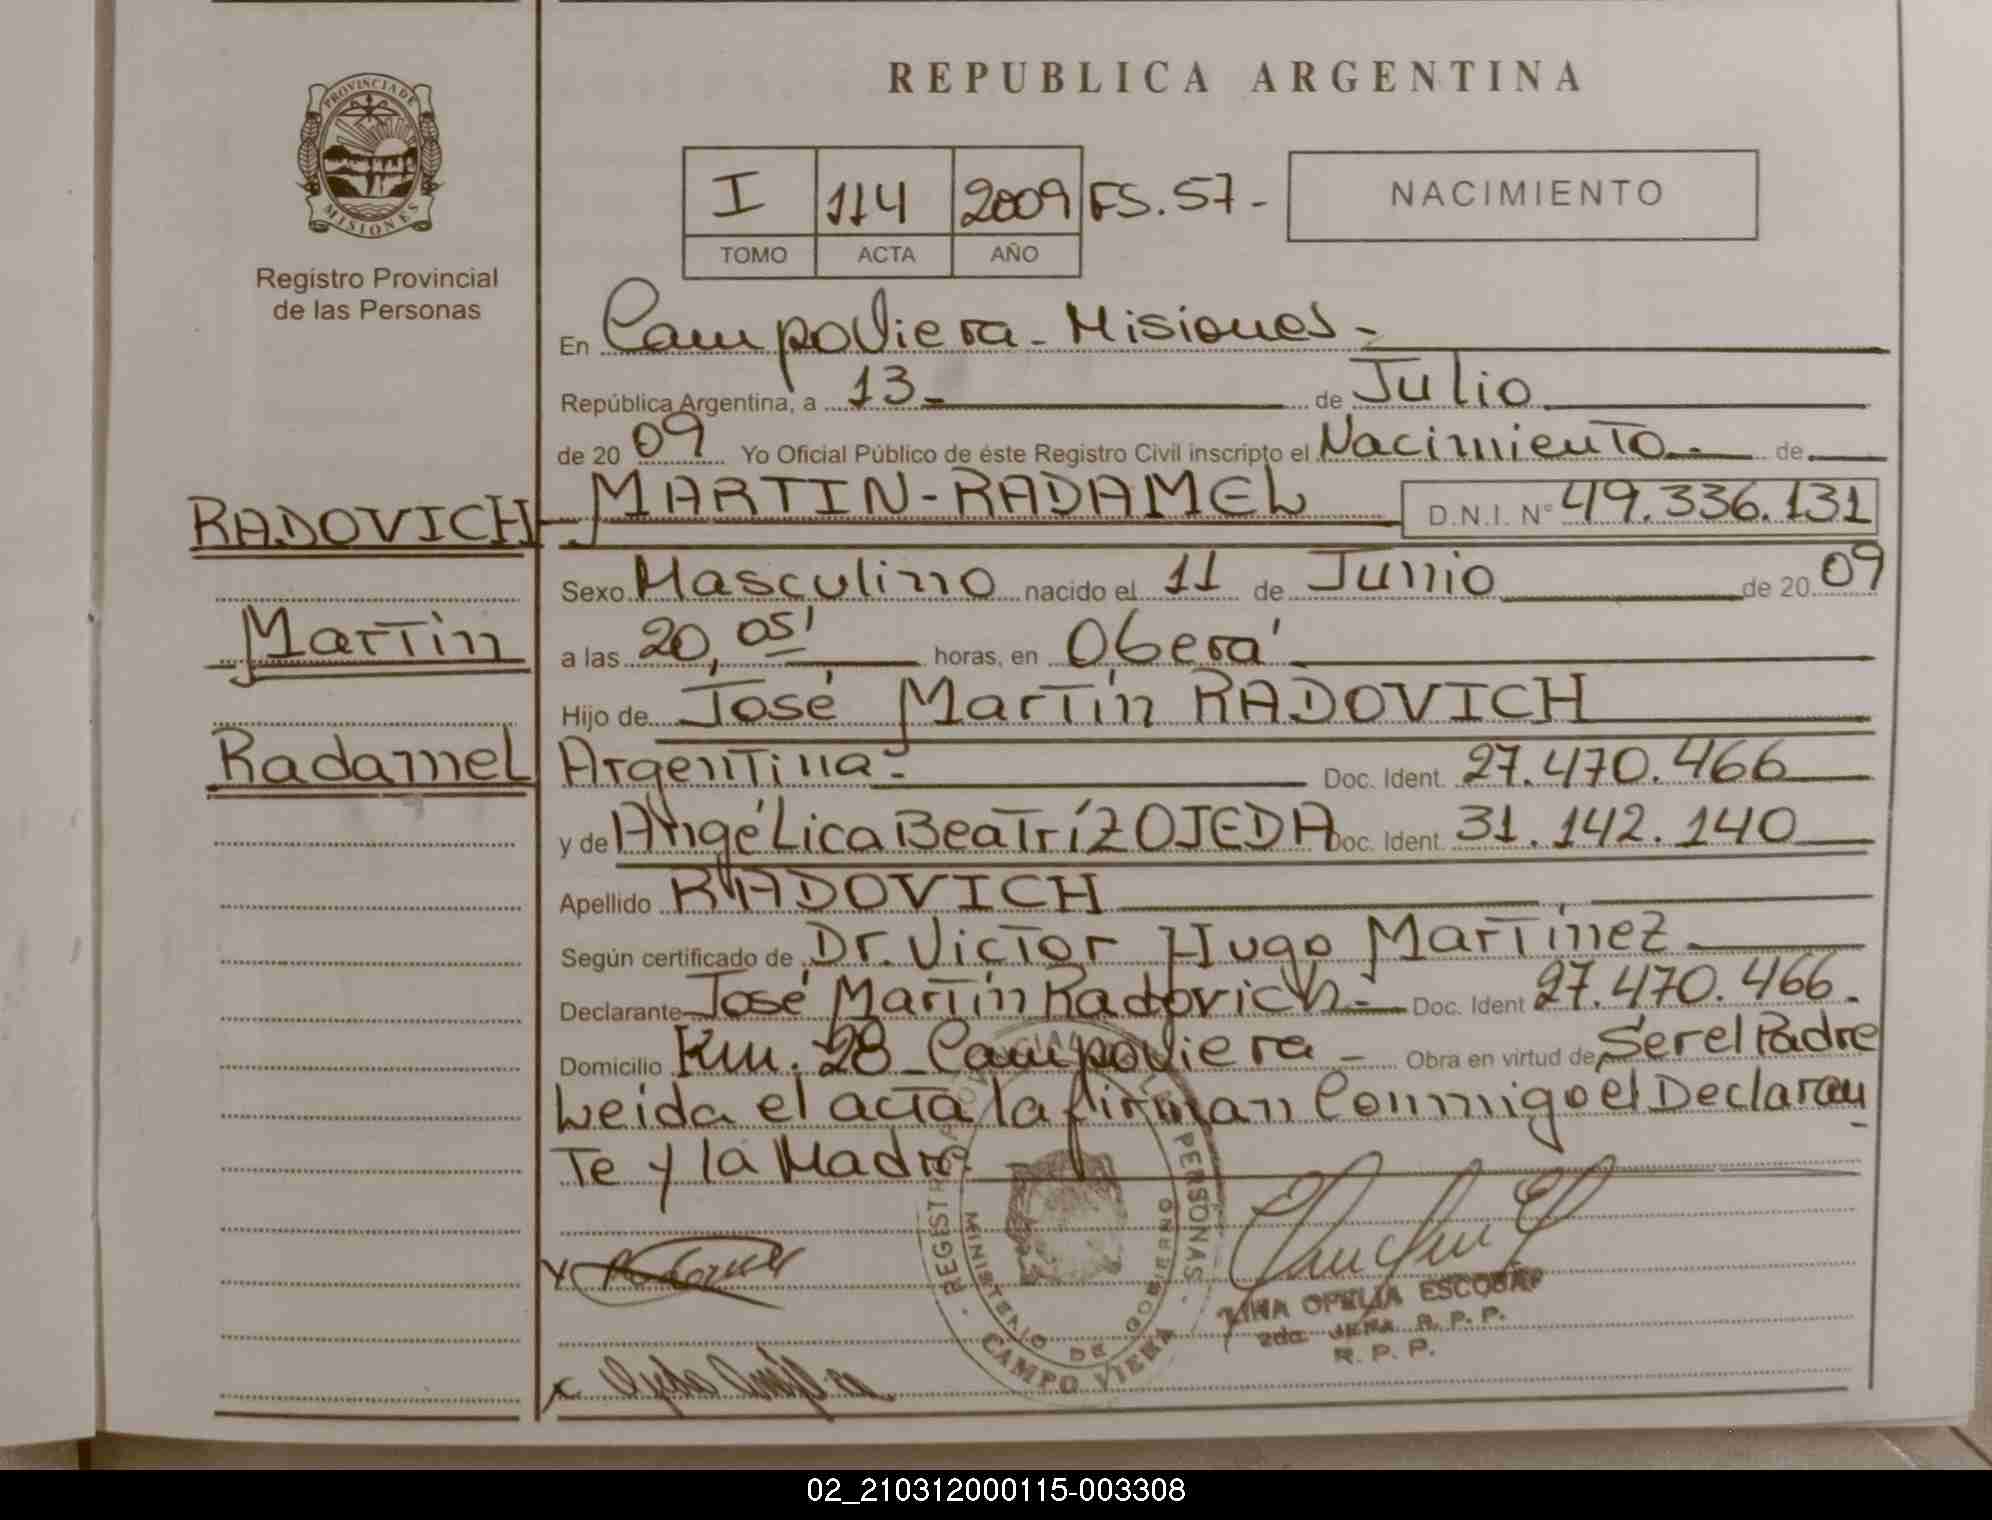 REPUBLICA ARGENTINA
PROVINCIA DE
MISIONES
Registro Provincial
de las Personas
I 114 2009 FS. 57-
TOMO ACTA AÑO
NACIMIENTO
En Campo Viera - Misiones -
República Argentina, a 13- de Julio
de 20 09 Yo Oficial Público de éste Registro Civil inscripto el Nacimiento de
RADOVICH - MARTIN - RADAMEL D.N.I. Nº 49.336.131
Sexo Masculino nacido el 11 de Junio de 20 09
Martin
a las 20,05' horas, en Oberá
Hijo de José Martín RADOVICH
Radamel
Argentina - Doc. Ident. 27.470.466
y de Angélica Beatríz OJEDA Doc. Ident. 31.142.140
Apellido RADOVICH
Según certificado de Dr. Victor Hugo Martínez
Declarante José Martín Radovich - Doc. Ident 27.470.466.
Domicilio Km. 28 Campo Viera - Obra en virtud de Ser el Padre
Leida el acta la firman Conmigo el Declaran
te y la Madre
REGISTRO PROVINCIAL DE LAS PERSONAS
MINISTERIO DE GOBIERNO
CAMPO VIERA
OFELIA ESCOBAR
2da. JEFA R. P. P.
R. P. P.
02_210312000115-003308